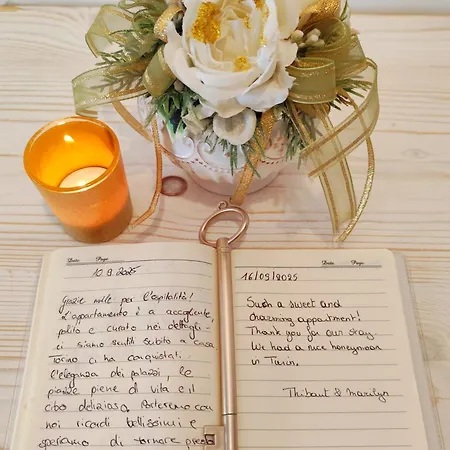 Date. Page.
10.9.2025
Grazie mille per l'ospitalità!
L'appartamento è accogliente,
pulito e curato nei dettagli -
ci siamo sentiti subito a casa
Torino ci ha conquistati.
L'eleganza dei palazzi, le
piazze piene di vita e il
cibo delizioso. Porteremo con
noi ricordi bellissimi e
speriamo di tornare presto
Date. Page.
16/09/2025
Such a sweet and
charming appartment!
Thank you for our stay.
We had a nice honeymoon
in Turin.
Thibaut & Marilyn